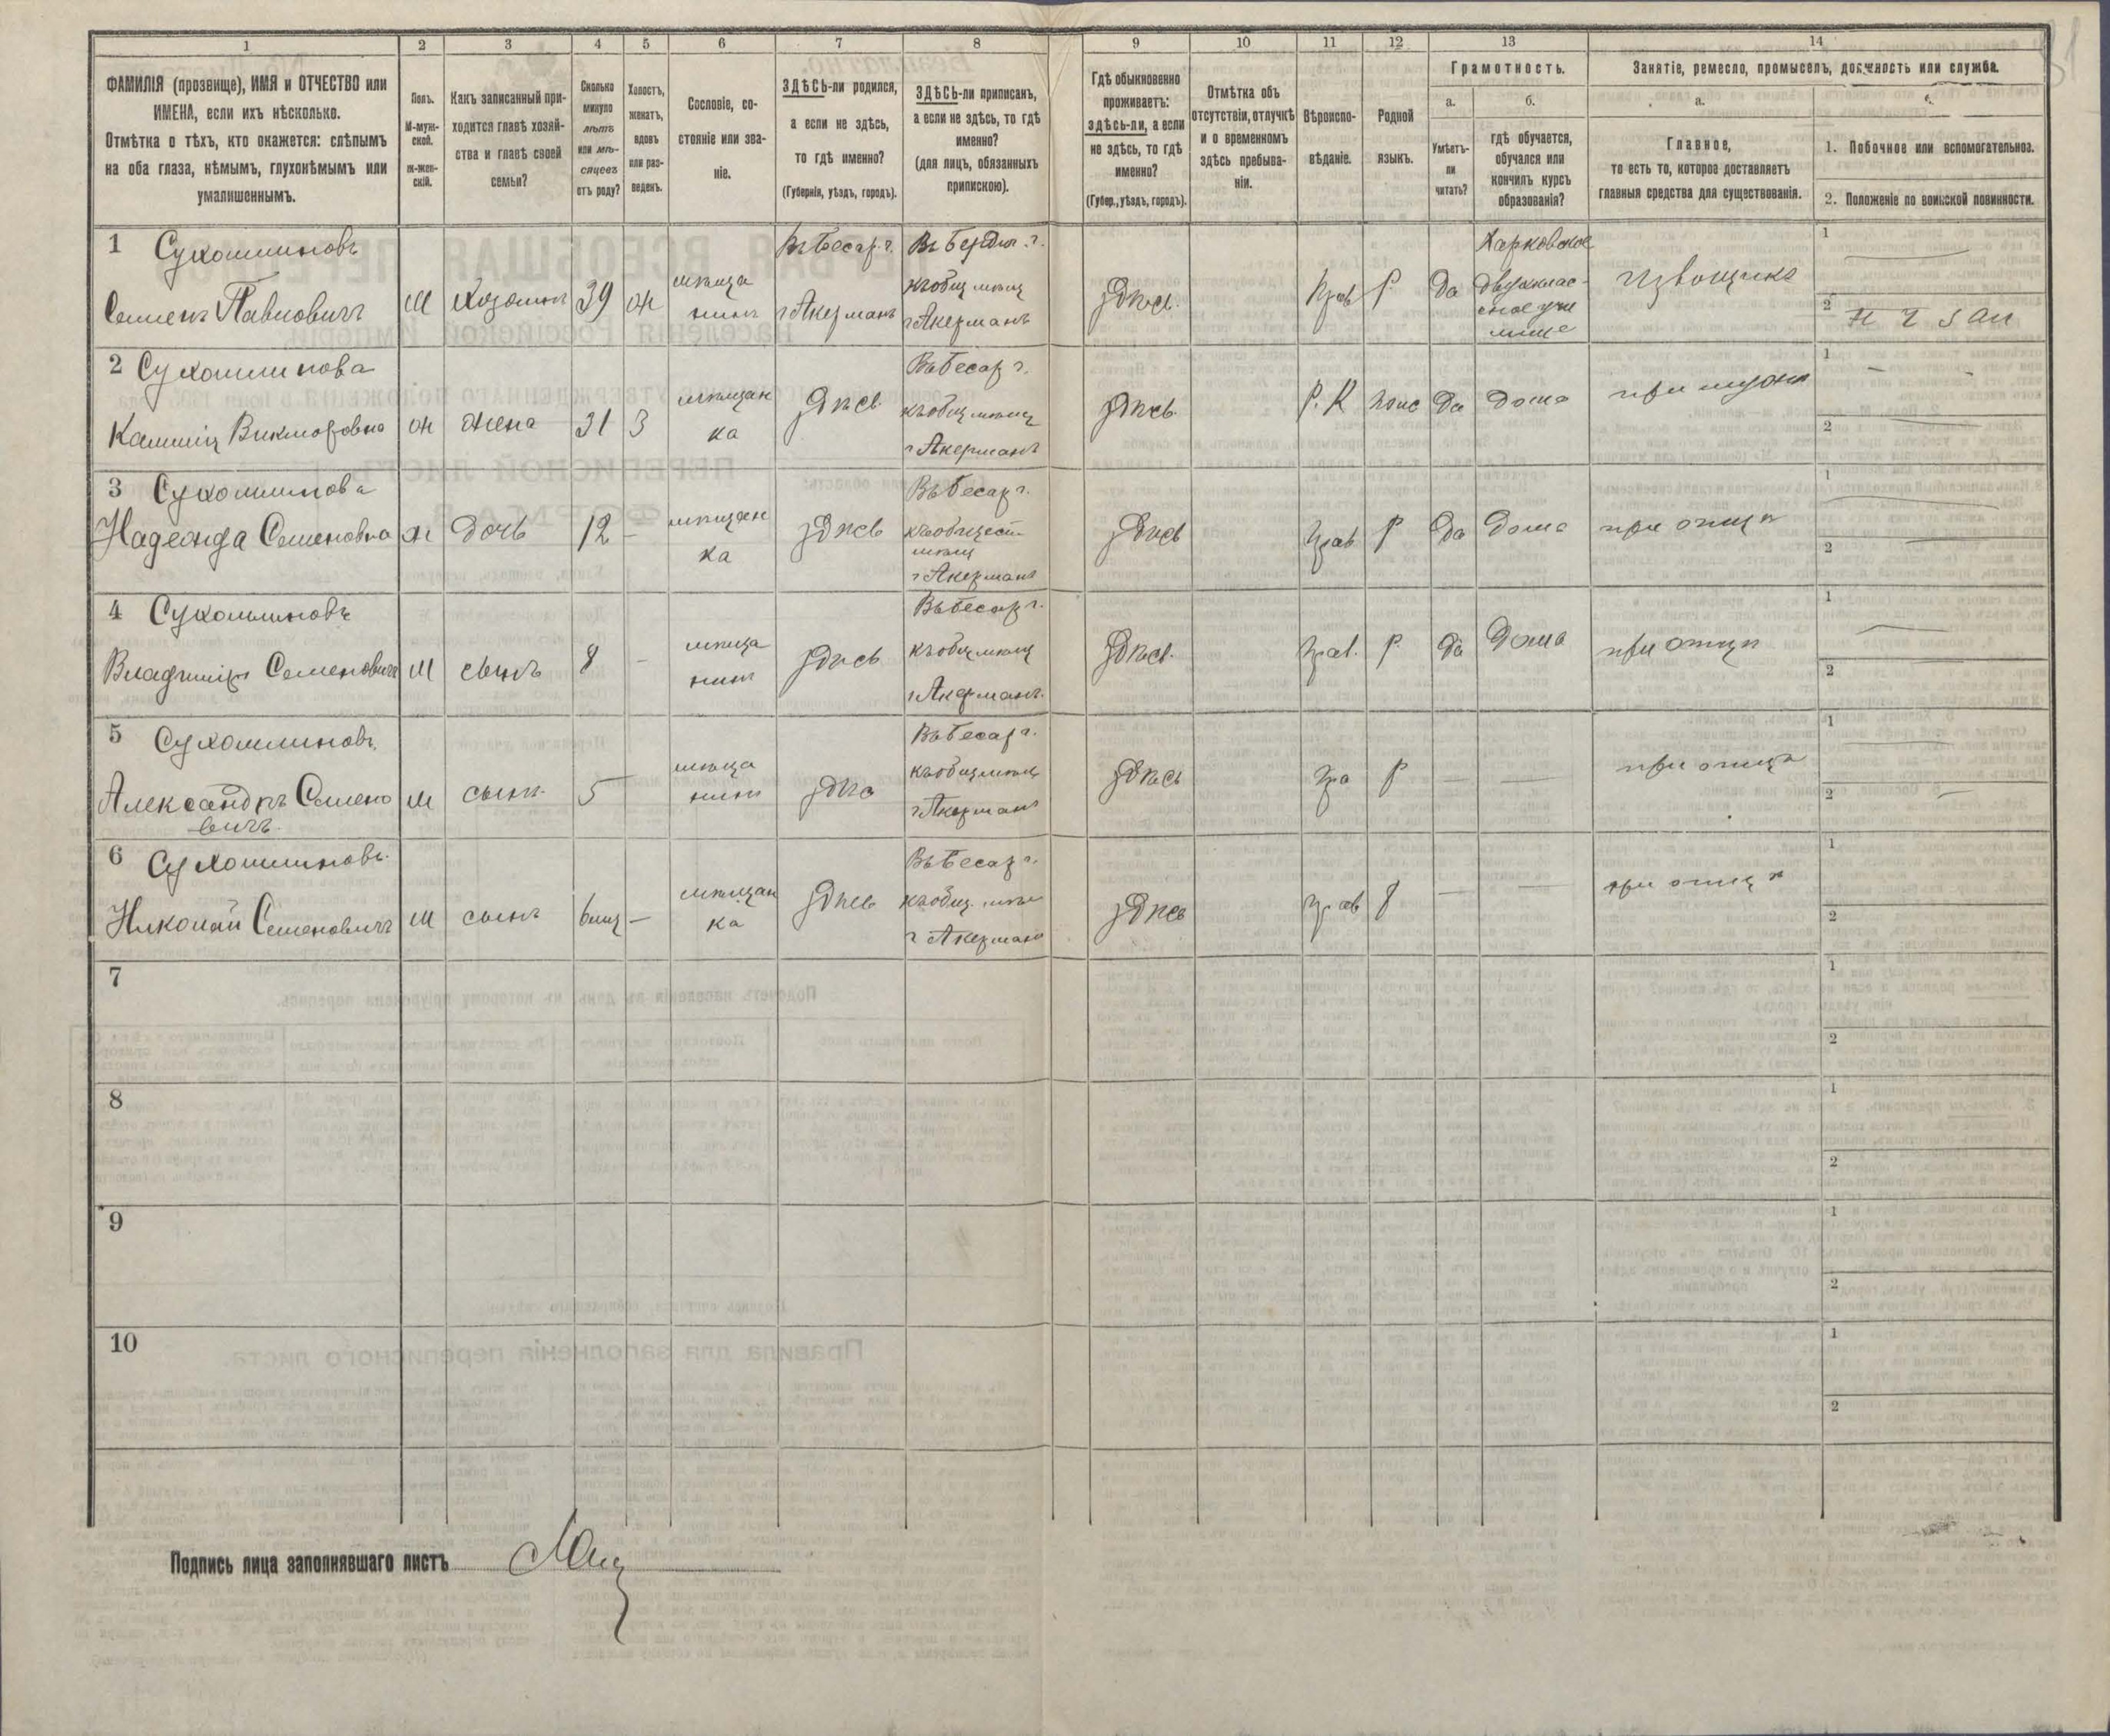 1 2 3 4 5 6 7 8 9 10 11 12 13 14
ФАМИЛІЯ (прозвище), ИМЯ и ОТЧЕСТВО или
ИМЕНА, если ихъ нѣсколько.
Отмѣтка о тѣхъ, кто окажется: слѣпымъ
на оба глаза, нѣмымъ, глухонѣмымъ или
умалишеннымъ.
Полъ.
М-муж-
ской.
ж-жен-
скій.
Какъ записанный при-
ходится главѣ хозяй-
ства и главѣ своей
семьи?
Сколько
минуло
лѣтъ
или мѣ-
сяцевъ
отъ роду?
Холостъ,
женатъ,
вдовъ
или раз-
веденъ.
Сословіе, со-
стояніе или зва-
ніе.
ЗДѢСЬ-ли родился,
а если не здѣсь,
то гдѣ именно?
(Губернія, уѣздъ, городъ).
ЗДѢСЬ-ли приписанъ,
а если не здѣсь, то гдѣ
именно?
(для лицъ, обязанныхъ
припискою).
Гдѣ обыкновенно
проживаетъ:
здѣсь-ли, а если
не здѣсь, то гдѣ
именно?
(Губер., уѣздъ, городъ).
Отмѣтка объ
отсутствіи, отлучкѣ
и о временномъ
здѣсь пребыва-
ніи.
Вѣроиспо-
вѣданіе.
Родной
языкъ.
Грамотность.
а.
Умѣетъ-
ли
читать?
б.
гдѣ обучается,
обучался или
кончилъ курсъ
образованія?
Занятіе, ремесло, промыселъ, должность или служба.
а.
Главное,
то есть то, которое доставляетъ
главныя средства для существованія.
1. Побочное или вспомогательноз.
2. Положеніе по воинской повинности.
1 Сухомлиновъ
Семенъ Павловичъ
М Хозяинъ 39 ж
мѣща
нинъ
Въ Бесар. г.
г Акерманъ
къ общ мѣщ
г Акерманъ
Здѣсь.
Прав Р. да
Харковское
двухклас-
сное учи
лище
Извощикъ
1
2
2 Сухомлинова
Викторовна
ж жена 31 З
мѣщан
ка
Здѣсь
Въ Бесар г.
къ общ мѣщ
г Акерманъ
Здѣсь
Р. К Полс да дома
при мужѣ
1
2
3 Сухомлинова
Надежда Семеновна
ж дочь 12 —
мѣщан
ка
здѣсь
Въ Бесар г.
къ общест
мѣщ
г Акерманъ
здѣсь
Прав Р да дома
при отцѣ
1
2
4 Сухомлиновъ
Владиміръ Семеновичъ
М сынъ 8 —
мѣща
нинъ
здѣсь
Въ Бесар г.
къ общ мѣщ
г Акерманъ.
здѣсь.
Прав. Р. да дома
при отцѣ
1
2
5 Сухомлиновъ
Александръ Семено
вичъ.
м сынъ. 5
мѣща
нинъ
здѣс
Въ Бесар г.
къ общ мѣщ
г Акерман
здѣсь
Пра Р — —
при отцѣ
1
2
6 Сухомлиновъ.
Николай Семеновичъ
М сынъ 6 мѣц —
мѣщан
ка
здѣсь
Въ Бесар г.
къ общ. мѣщ
г Акерман
здѣсь
Прав Р — —
при отцѣ
1
2
7
1
2
8
1
2
9
1
2
10
1
2
Подпись лица заполнявшаго листъ